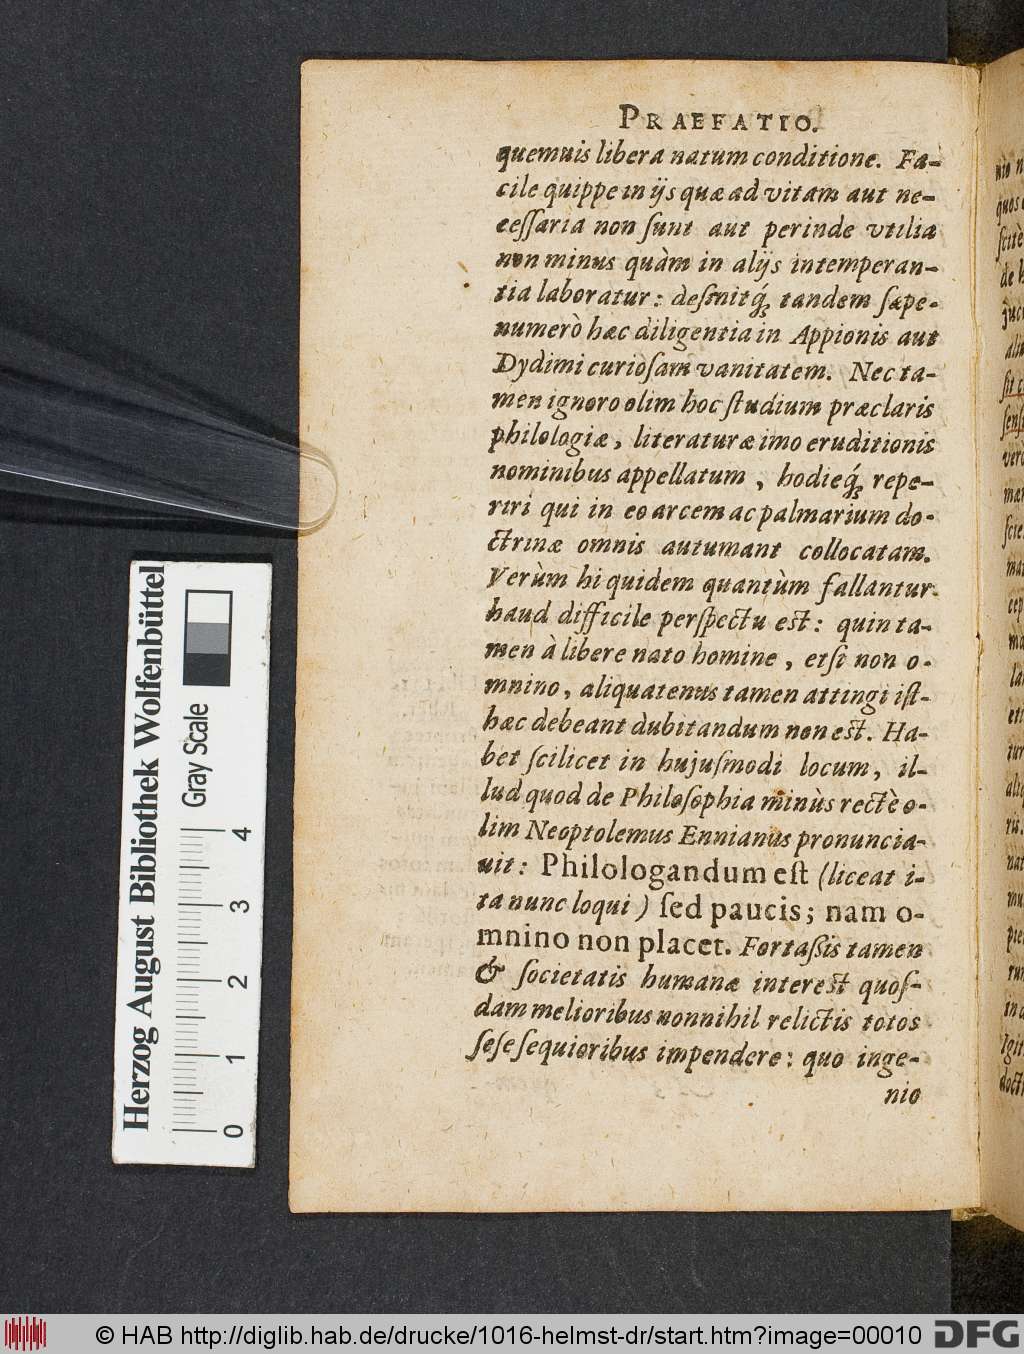 PRAEFATIO.
quemuis libera natum conditione. Fa-
cile quippe in ijs quæ ad vitam aut ne-
ceſſaria non ſunt aut perinde vtilia
non minus quàm in alijs intemperan-
tia laboratur: deſinitq́; tandem ſæpe-
numerò hæc diligentia in Appionis aut
Dydimi curioſam vanitatem. Nec ta-
men ignoro olim hoc ſtudium præclaris
philologiæ, literaturæ imo eruditionis
nominibus appellatum, hodieq́; repe-
riri qui in eo arcem ac palmarium do-
ctrinæ omnis autumant collocatam.
Verùm hi quidem quantùm fallantur
haud difficile perſpectu est: quin ta-
men à libere nato homine, etſi non o-
mnino, aliquatenus tamen attingi iſt-
hæc debeant dubitandum non eſt. Ha-
bet ſcilicet in hujuſmodi locum, il-
lud quod de Philoſophia minùs rectè o-
lim Neoptolemus Ennianus pronuncia-
uit: Philologandum eſt (liceat i-
ta nunc loqui) ſed paucis; nam o-
mnino non placet. Fortaßis tamen
& ſocietatis humanæ intereſt quoſ-
dam melioribus nonnihil relictis totos
ſeſe ſequioribus impendere: quo inge-
nio
Herzog August Bibliothek Wolfenbüttel
Gray Scale
0 1 2 3 4
© HAB http://diglib.hab.de/drucke/1016-helmst-dr/start.htm?image=00010
DFG